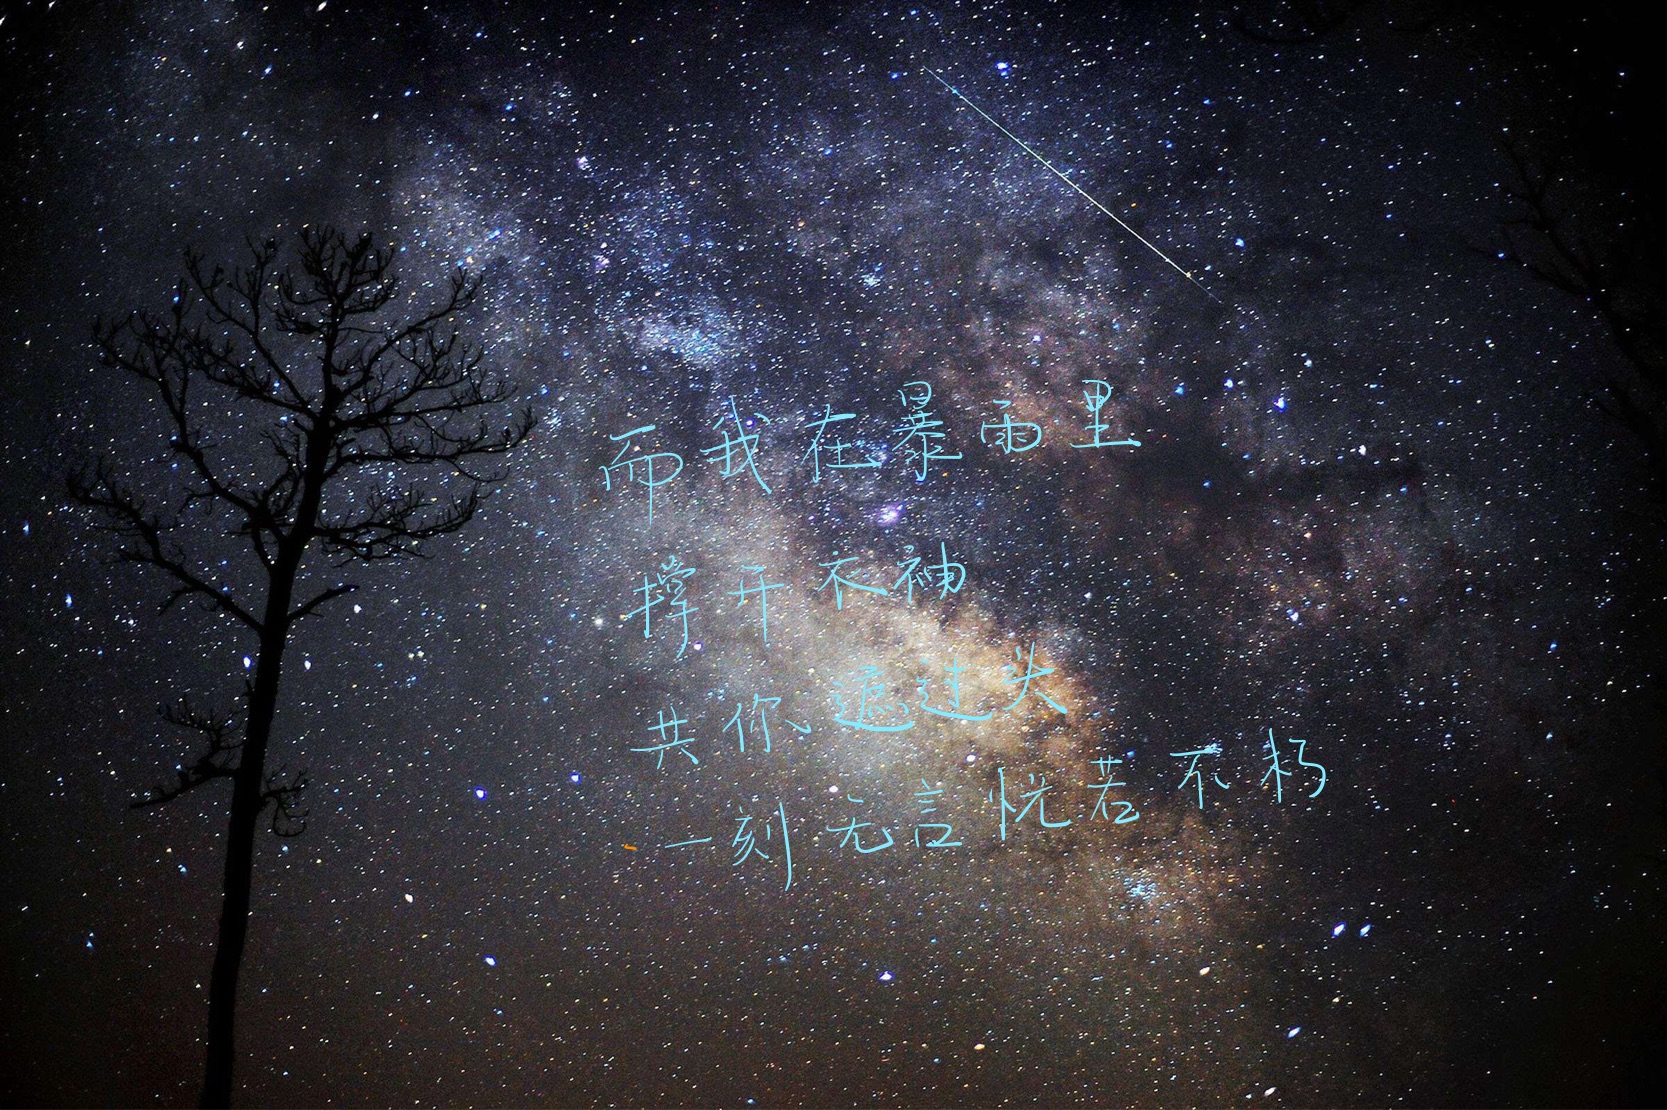 而我在暴雨里
撑开衣袖
共你遮过头
一刻无言恍若不朽